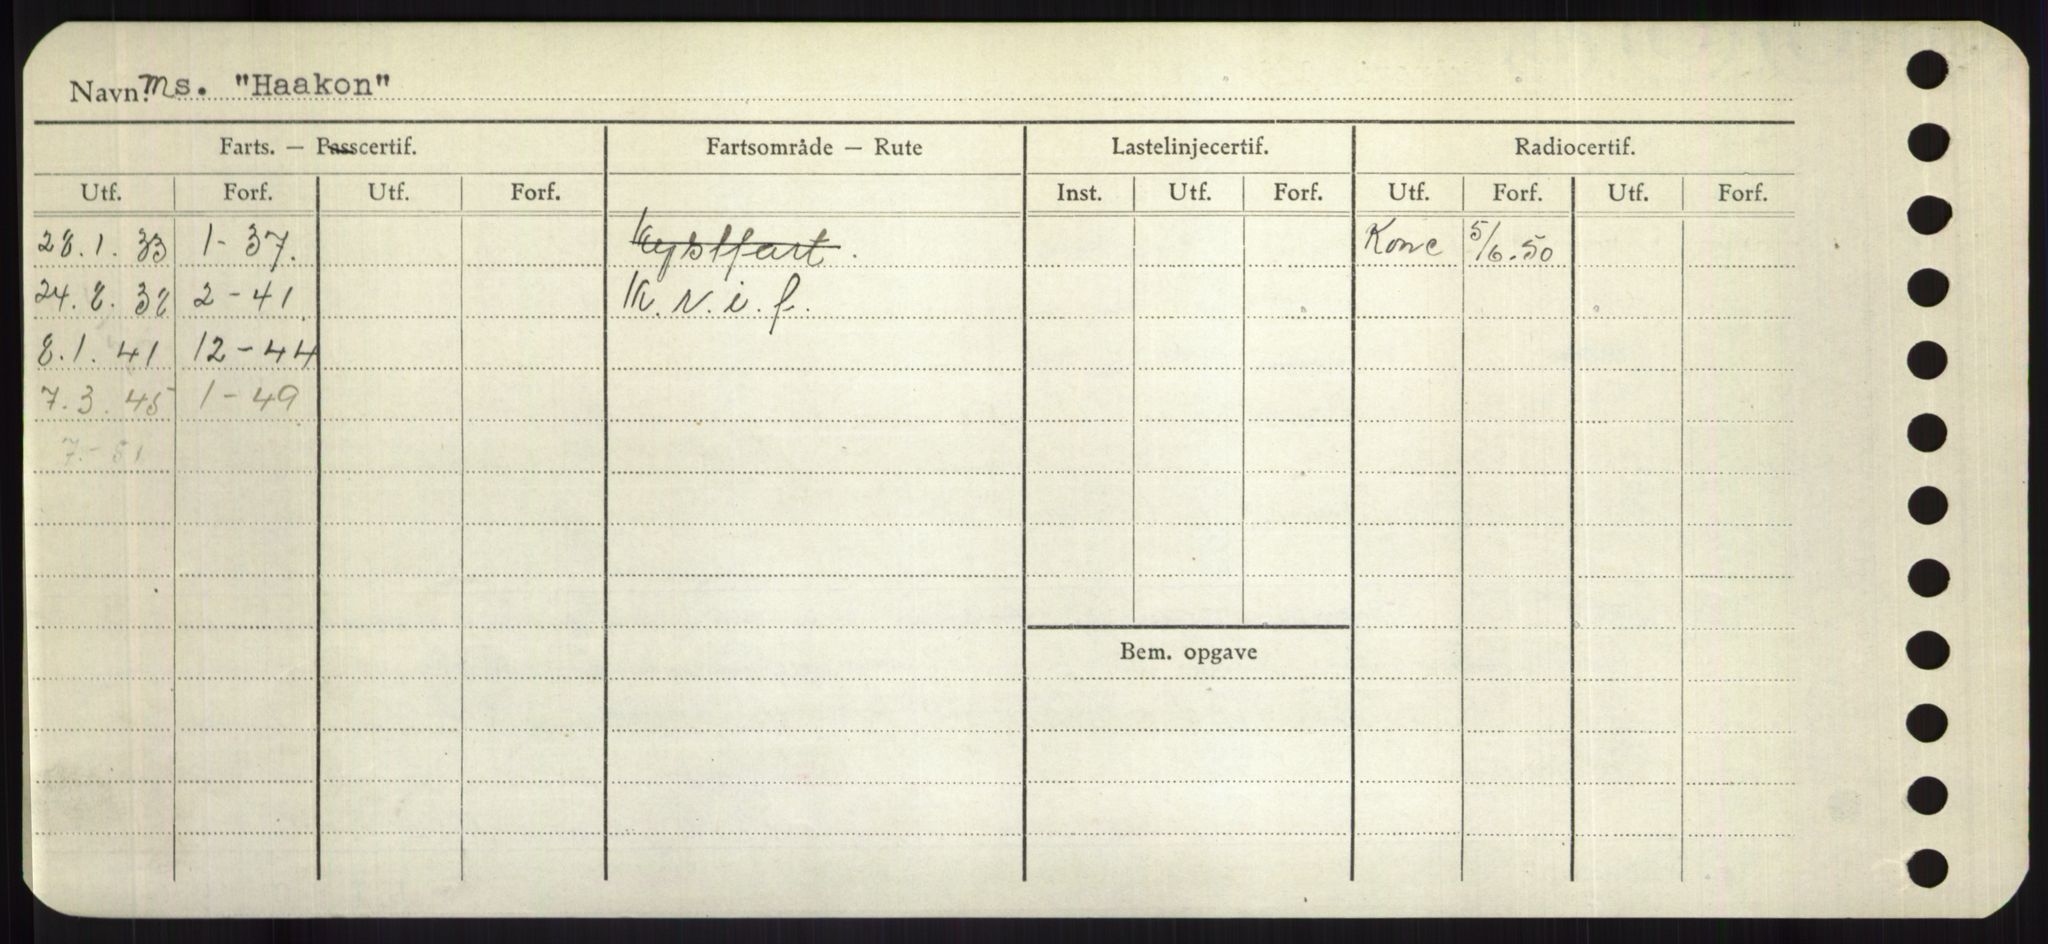 Navn: Ms. "Haakon"
Farts. — Passcertif. Fartsområde — Rute Lastelinjecertif. Radiocertif.
Utf. Forf. Utf. Forf. Inst. Utf. Forf. Utf. Forf. Utf. Forf.
28.1.33 1-37. Kystfart. Konc 5/6.50
24.8.38 2-41 K.r.i.f.
8.1.41 12-44
7.3.45 1-49
7.-51
Bem. opgave